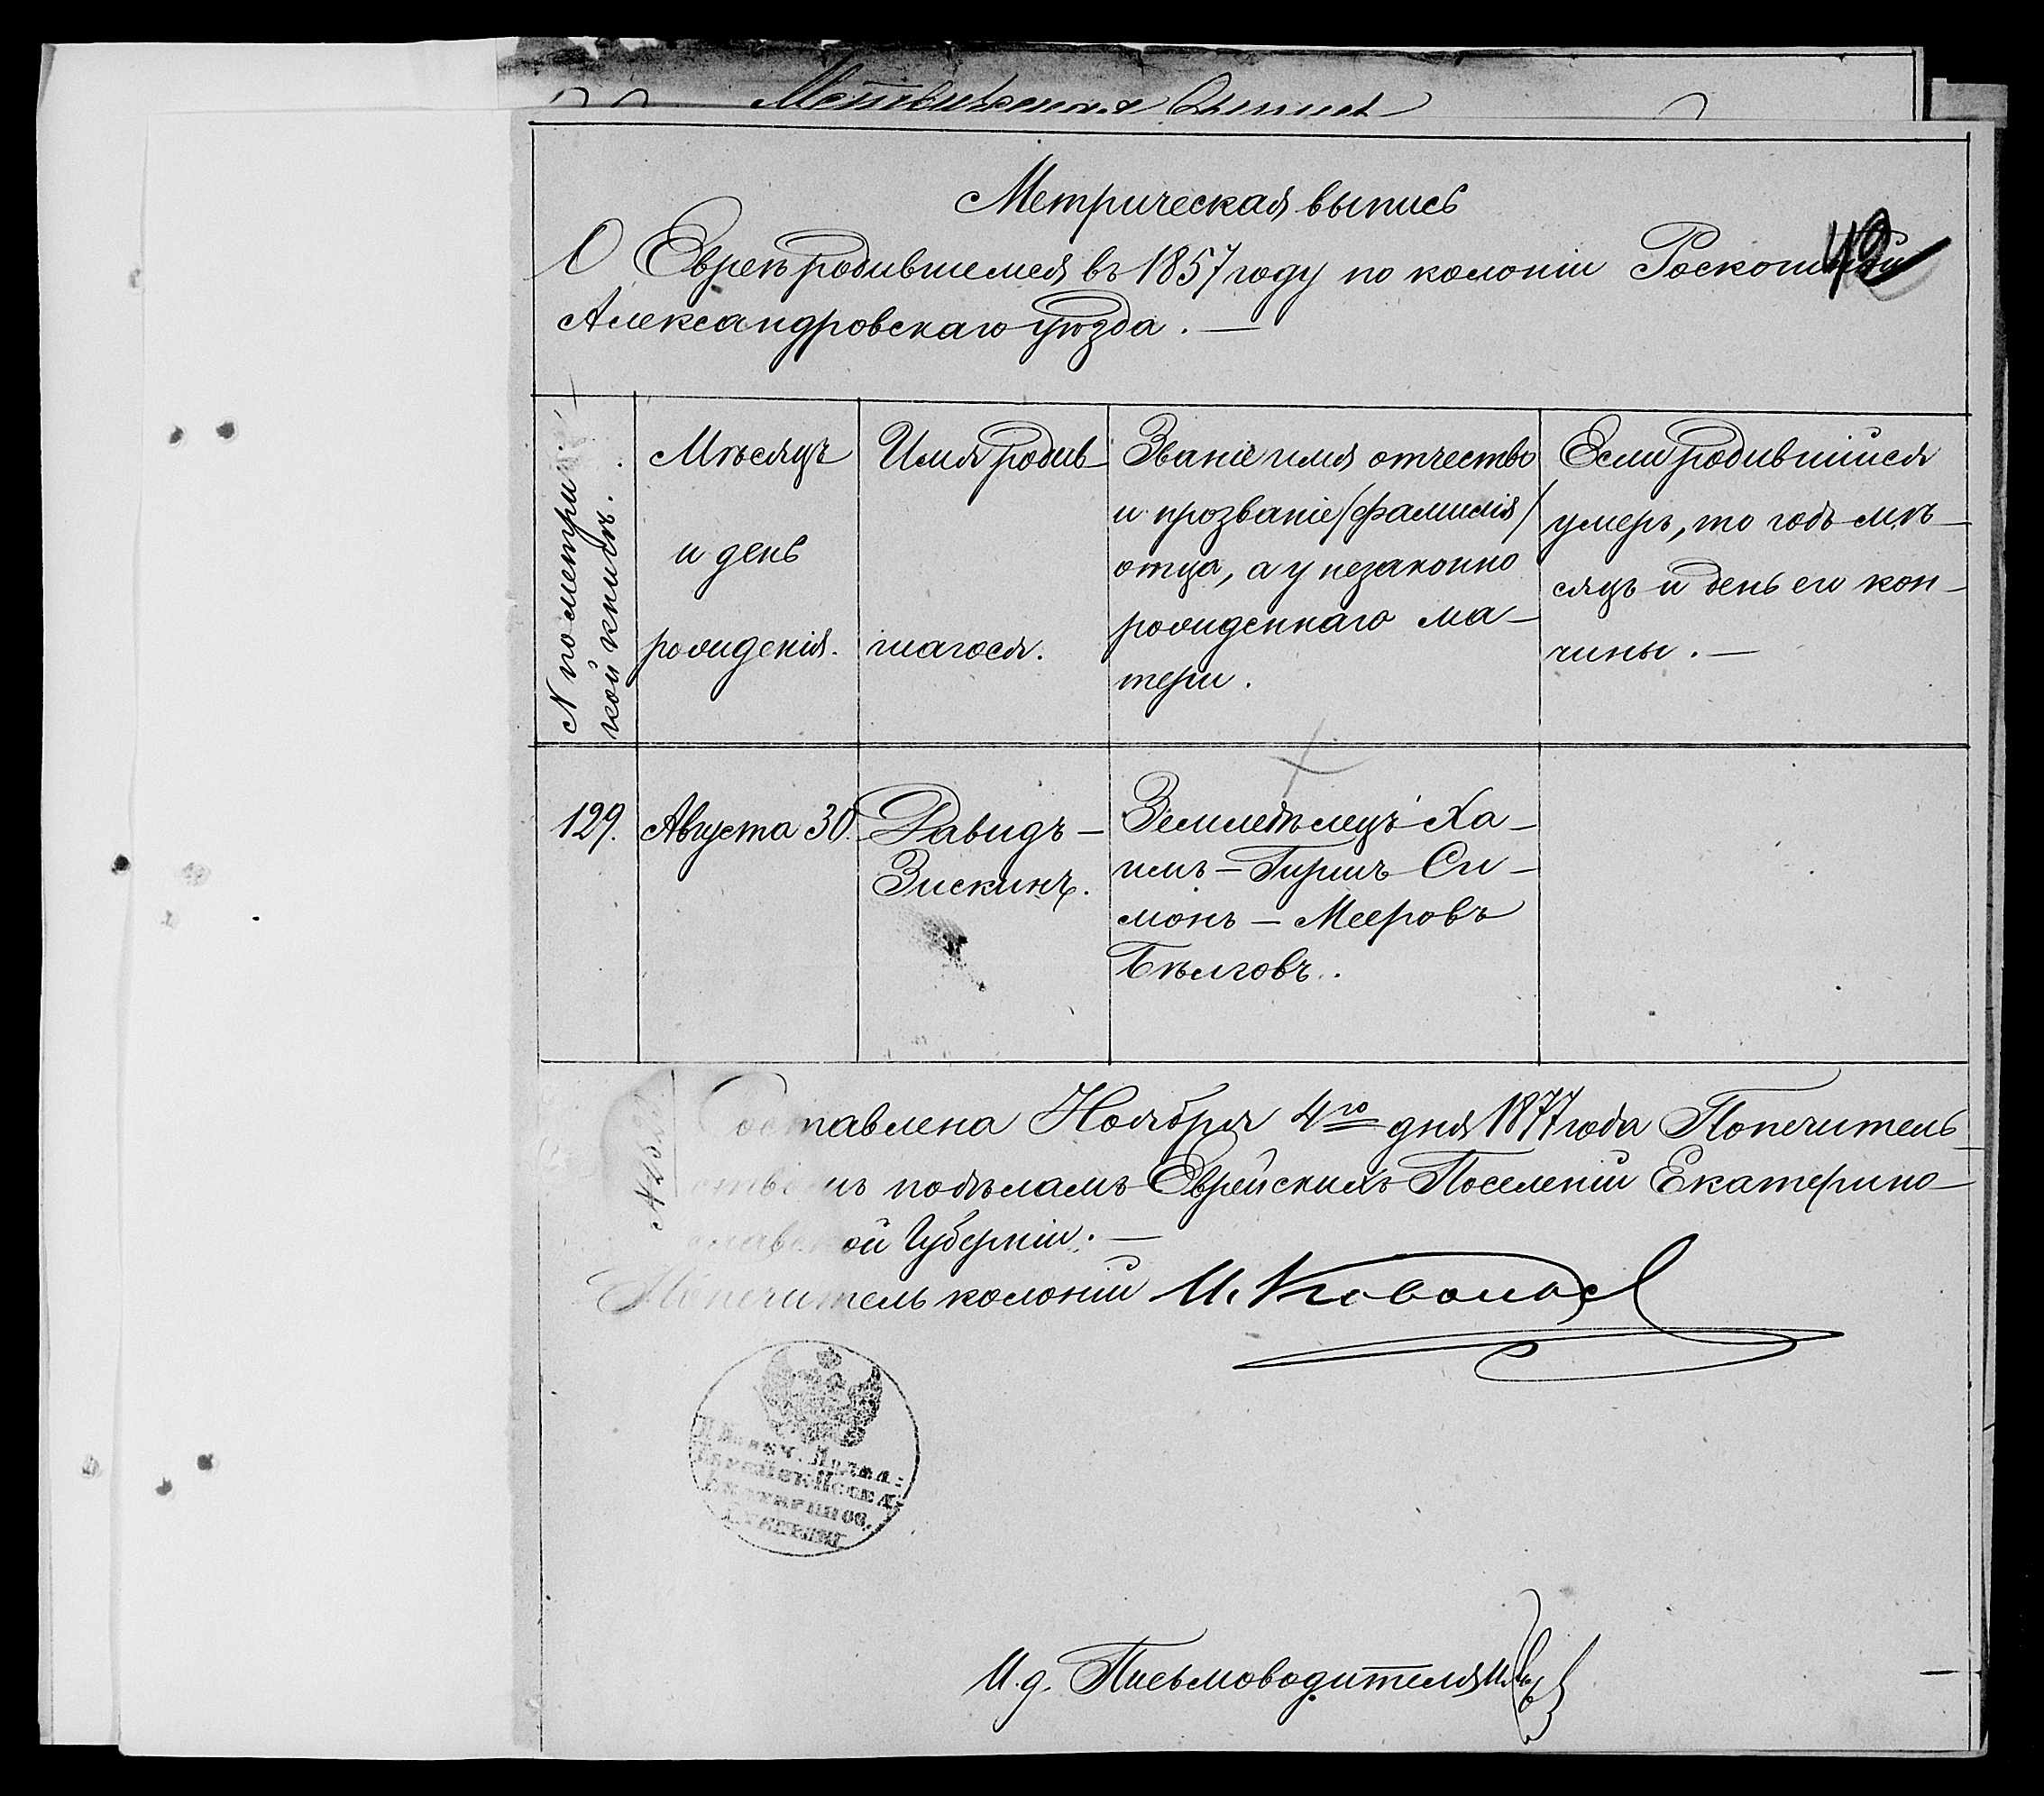 Метрическая выпись
Метрическая выпись
О Евреѣ родившемся въ 1857 году по колоніи Роскошной
42
Александровскаго уѣзда. —
N по метри-
кой книгѣ.
Мѣсяцъ
и день
рожденія.
Имя родив-
шагося.
Званіе имя отчество
и прозваніе /фамилія/
отца, а у незаконно
рожденнаго ма-
тери.
Если родившійся
умеръ, то годъ мѣ-
сяцъ и день его кон-
чины. —
129.
Августа 30.
Давидъ-
Зискинъ.
Земледѣлецъ Ха-
имъ-Гиршъ Си-
монъ-Мееровъ
Бѣлговъ.
Составлена Ноября 4го дня 1877 года Попечитель-
ствомъ по дѣламъ Еврейскихъ Поселеній Екатерино-
славской Губерніи. —
Попечитель колоній И.
И.д. Письмоводителя